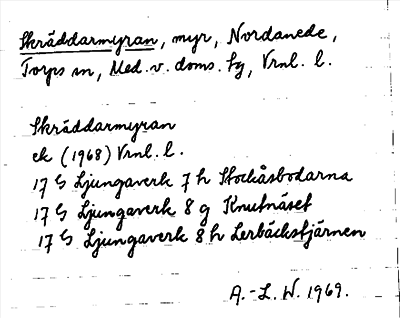 Skräddarmyran, myr, Nordanede,
Torps sn, Med. v. doms. hg, Vrnl. l.
Skräddarmyran
ek (1968) Vrnl. l.
17 G Ljungaverk 7 h Stockåsbodarna
17 G Ljungaverk 8 g Knutnäset
17 G Ljungaverk 8 h Lerbäckstjärnen
A.-L. W. 1969.